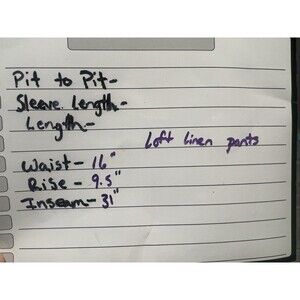 Pit to Pit-
Sleeve Length-
Length-
Loft linen pants
Waist- 16"
Rise- 9.5"
Inseam- 31"